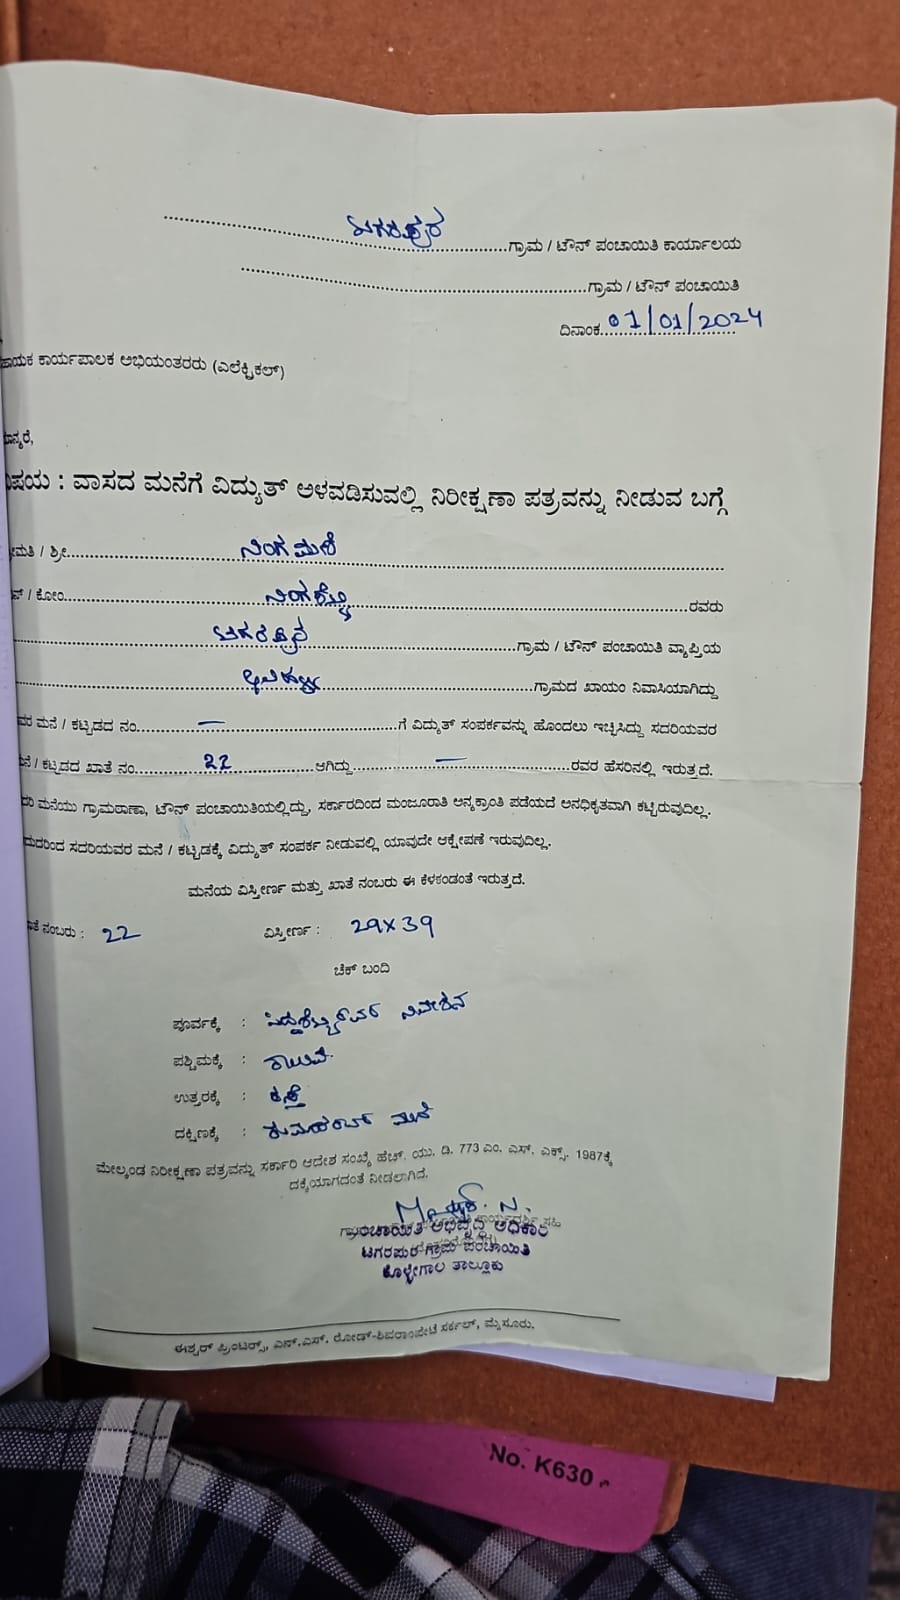 ಟಗರಪುರ
ಗ್ರಾಮ / ಟೌನ್ ಪಂಚಾಯಿತಿ ಕಾರ್ಯಾಲಯ
ಗ್ರಾಮ / ಟೌನ್ ಪಂಚಾಯಿತಿ
ದಿನಾಂಕ 01/01/2024
ಕಾರ್ಯಪಾಲಕ ಅಭಿಯಂತರರು (ಎಲೆಕ್ಟ್ರಿಕಲ್)
: ವಾಸದ ಮನೆಗೆ ವಿದ್ಯುತ್ ಅಳವಡಿಸುವಲ್ಲಿ ನಿರೀಕ್ಷಣಾ ಪತ್ರವನ್ನು ನೀಡುವ ಬಗ್ಗೆ
/ ಶ್ರೀ
/ ಕೋಂ ರವರು
ಟಗರಪುರ ಗ್ರಾಮ / ಟೌನ್ ಪಂಚಾಯಿತಿ ವ್ಯಾಪ್ತಿಯ
ಗ್ರಾಮದ ಖಾಯಂ ನಿವಾಸಿಯಾಗಿದ್ದು
ಮನೆ / ಕಟ್ಟಡದ ನಂ. — ಗೆ ವಿದ್ಯುತ್ ಸಂಪರ್ಕವನ್ನು ಹೊಂದಲು ಇಚ್ಛಿಸಿದ್ದು ಸದರಿಯವರ
/ ಕಟ್ಟಡದ ಖಾತೆ ನಂ. 22 ಆಗಿದ್ದು — ರವರ ಹೆಸರಿನಲ್ಲಿ ಇರುತ್ತದೆ.
ಮನೆಯು ಗ್ರಾಮಠಾಣಾ, ಟೌನ್ ಪಂಚಾಯಿತಿಯಲ್ಲಿದ್ದು, ಸರ್ಕಾರದಿಂದ ಮಂಜೂರಾತಿ ಅನ್ಯಕ್ರಾಂತಿ ಪಡೆಯದೆ ಅನಧಿಕೃತವಾಗಿ ಕಟ್ಟಿರುವುದಿಲ್ಲ.
ಸದರಿಯವರ ಮನೆ / ಕಟ್ಟಡಕ್ಕೆ ವಿದ್ಯುತ್ ಸಂಪರ್ಕ ನೀಡುವಲ್ಲಿ ಯಾವುದೇ ಆಕ್ಷೇಪಣೆ ಇರುವುದಿಲ್ಲ.
ಮನೆಯ ವಿಸ್ತೀರ್ಣ ಮತ್ತು ಖಾತೆ ನಂಬರು ಈ ಕೆಳಕಂಡಂತೆ ಇರುತ್ತದೆ.
ನಂಬರು : 22 ವಿಸ್ತೀರ್ಣ : 29x39
ಚೆಕ್ ಬಂದಿ
ಪೂರ್ವಕ್ಕೆ : ನಿವೇಶನ
ಪಶ್ಚಿಮಕ್ಕೆ :
ಉತ್ತರಕ್ಕೆ : ರಸ್ತೆ
ದಕ್ಷಿಣಕ್ಕೆ : ಮನೆ
ಮೇಲ್ಕಂಡ ನಿರೀಕ್ಷಣಾ ಪತ್ರವನ್ನು ಸರ್ಕಾರಿ ಆದೇಶ ಸಂಖ್ಯೆ ಹೆಚ್. ಯು. ಡಿ. 773 ಎಂ. ಎಸ್. ಎಕ್ಸ್. 1987ಕ್ಕೆ
ದಕ್ಕೆಯಾಗದಂತೆ ನೀಡಲಾಗಿದೆ.
ಪಂಚಾಯಿತಿ ಅಭಿವೃದ್ಧಿ ಅಧಿಕಾರಿ
ಟಗರಪುರ ಗ್ರಾಮ ಪಂಚಾಯಿತಿ
ಕೊಳ್ಳೇಗಾಲ ತಾಲ್ಲೂಕು
ಈಶ್ವರ್ ಪ್ರಿಂಟರ್ಸ್, ಎನ್.ಎಸ್. ರೋಡ್-ಶಿವರಾಂಪೇಟೆ ಸರ್ಕಲ್, ಮೈಸೂರು.
No. K630